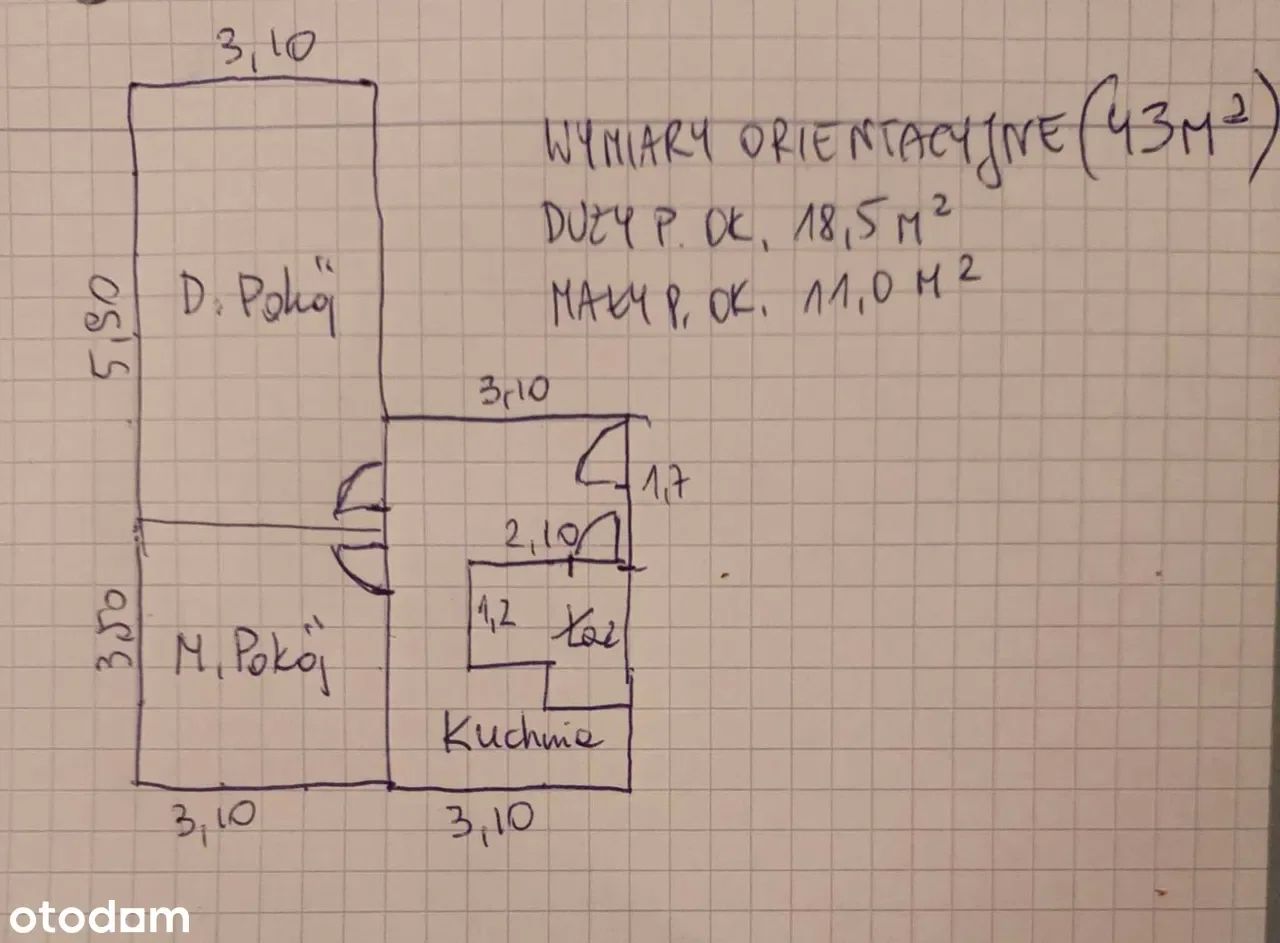 3,10
WYMIARY ORIENTACYJNE (43M²)
DUŻY P. OK. 18,5 M²
MAŁY P. OK. 11,0 M²
D. Pokój
5,90
3,10
1,7
2,10
1,2
Łaz
3,50
M. Pokój
Kuchnia
3,10
3,10
otodom